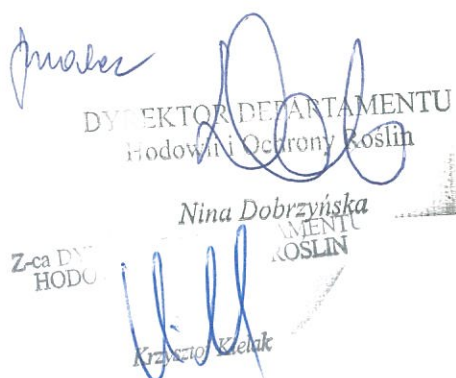 DYREKTOR DEPARTAMENTU
Hodowli i Ochrony Roślin
Nina Dobrzyńska
Z-ca DY AMENTU
HODO ROŚLIN
Krzysztof Kielak